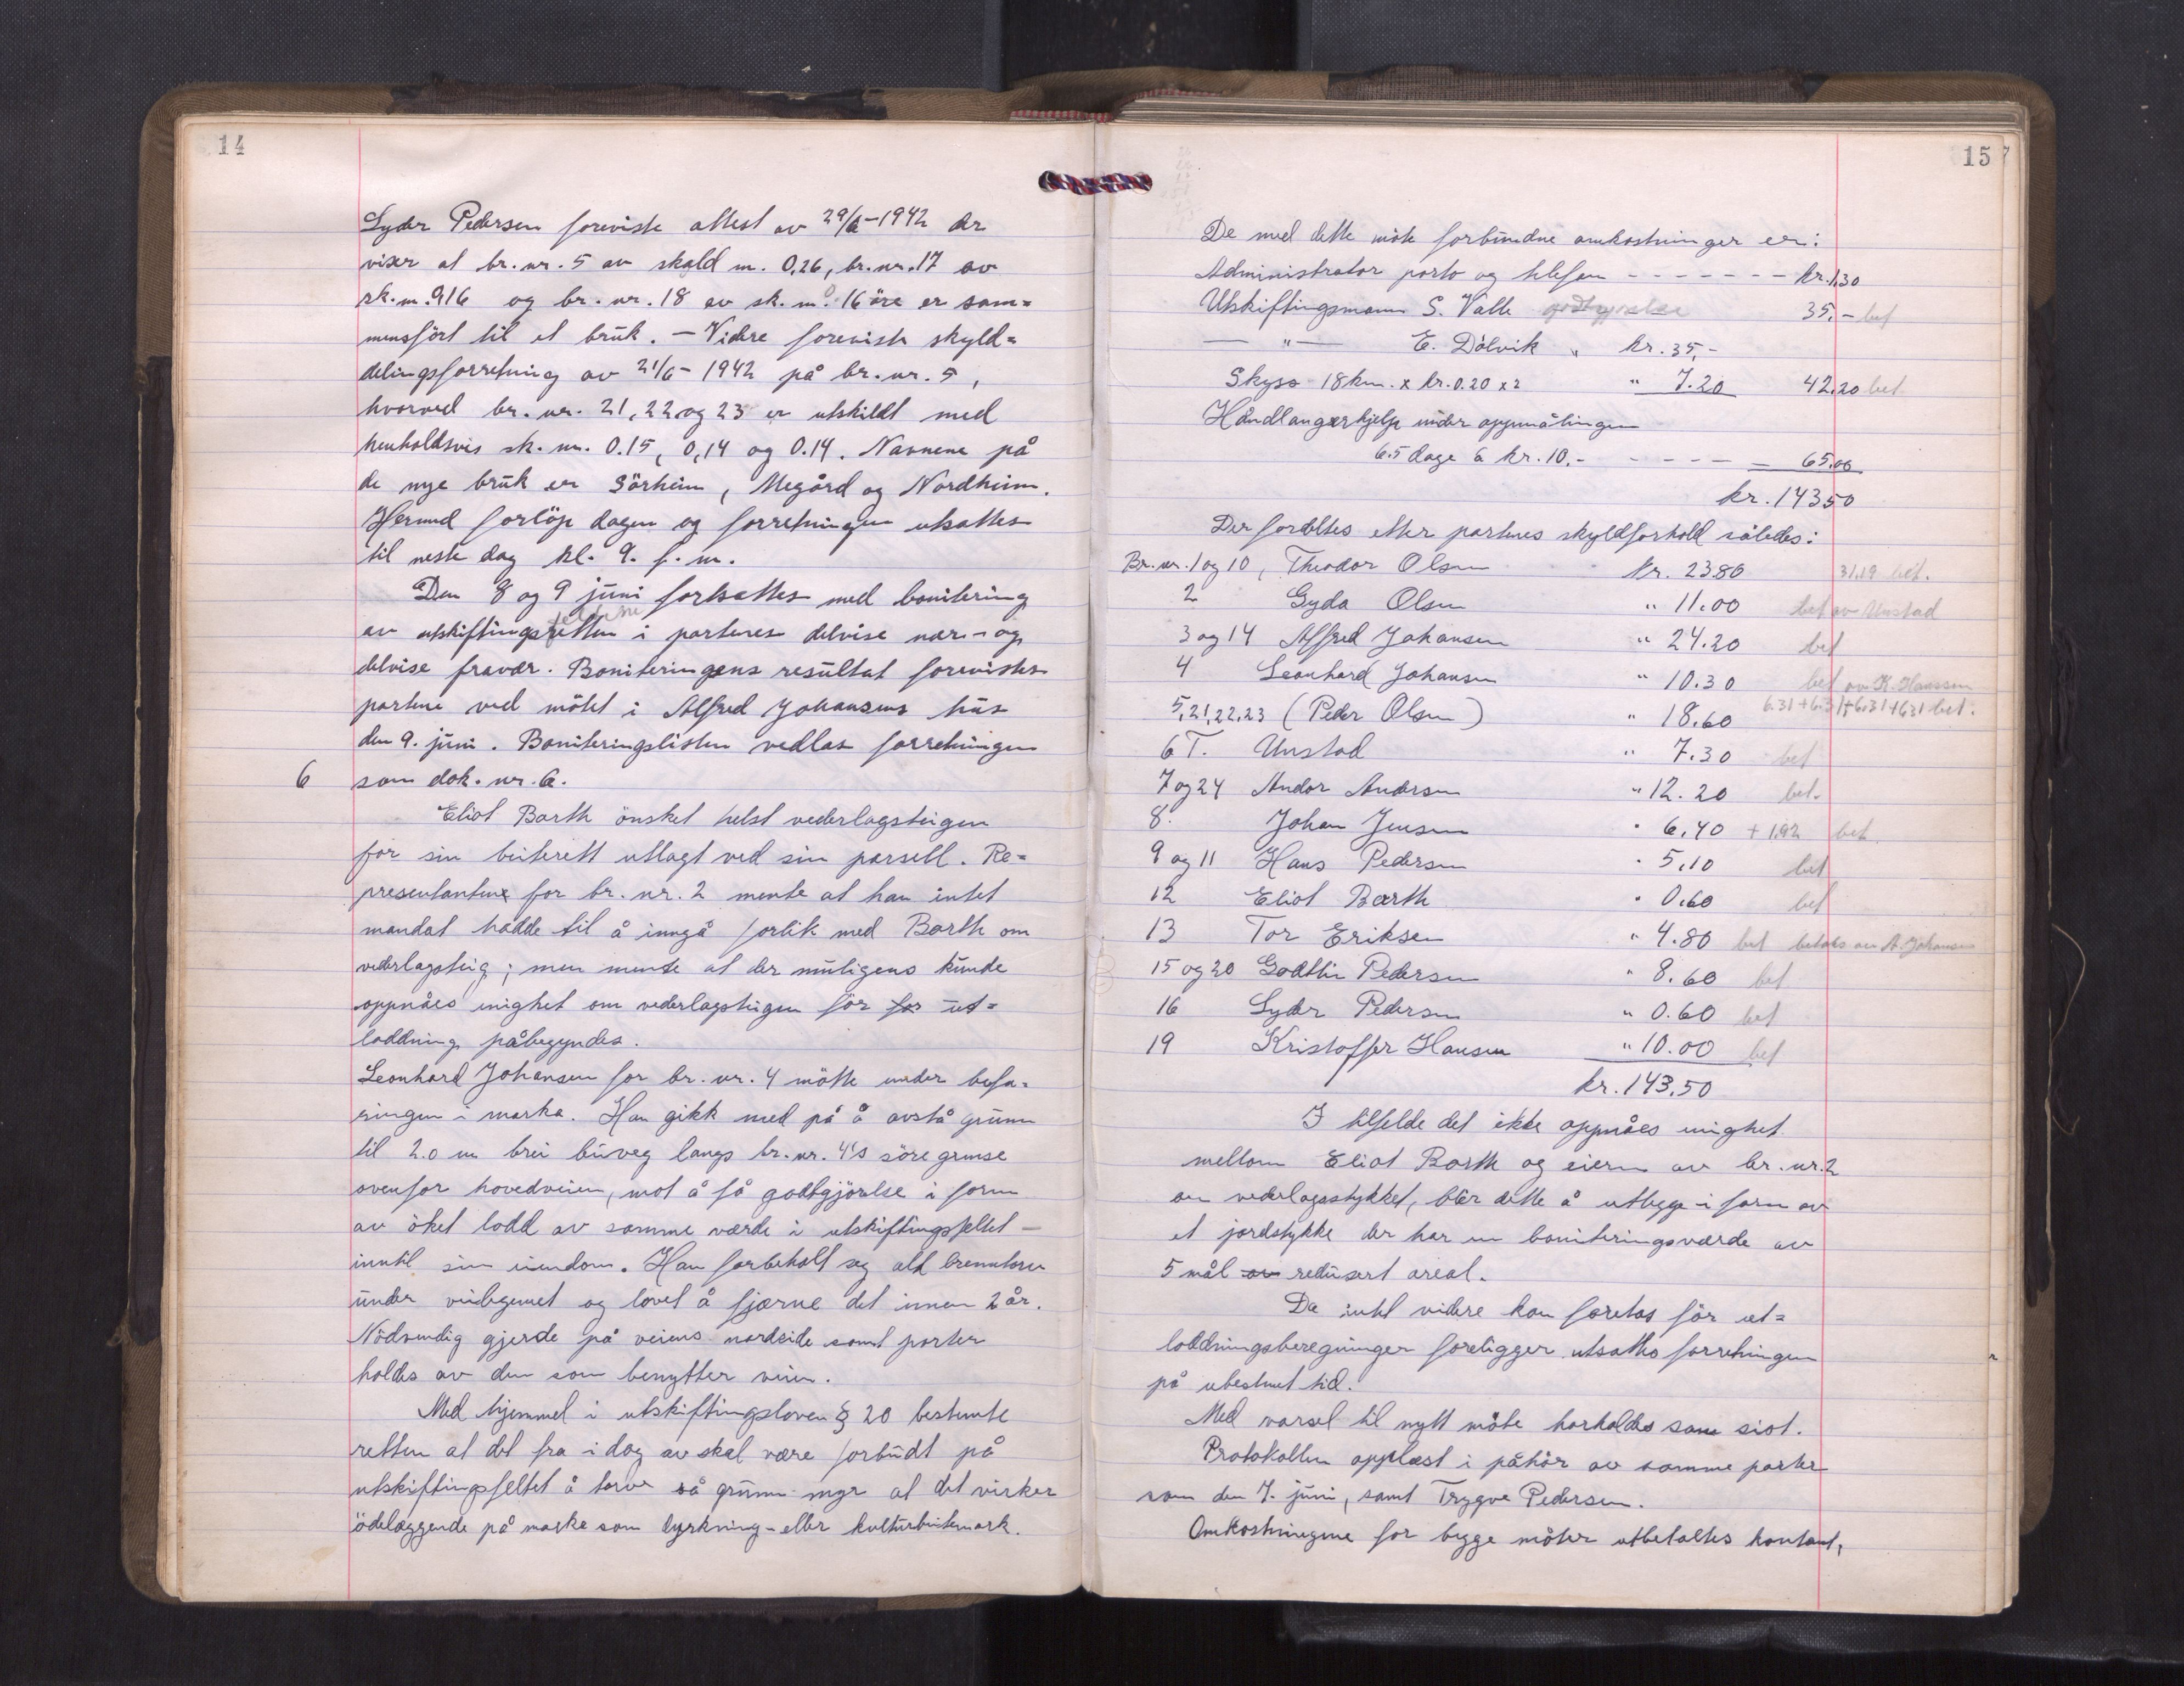 14
Lyder Pedersen foreviste attest av 29/6-1942 der
viser at br.nr. 5 av skyld m. 0,26, br.nr. 17 av
sk.m. 916 og br.nr. 18 av sk.m. 16 öre er sam=
mensfört til et brük. - Videre foreviste skyld=
delingsforretning av 21/6-1942 på br.nr. 5,
hvorved br.nr. 21, 22 og 23 er utskildt med
henholdsvis sk.m. 0.15, 0,14 og 0.14. Navnene på
de nye brük er Sörheim, Megård og Nordheim.
Hermed forlöp dagen og forretningen utsattes
til neste dag kl. 9. f.m.
Den 8 og 9 jüni fortsattes med bonitering
av utskiftingsfeltene i partenes delvise nær- og
delvise fravær. Boniteringens resültat forevistes
partene ved mötet i Alfred Johansens hüs
den 9. jüni. Boniteringslisten vedlas forretningen
6 som dok. nr. 6.
Eliot Barth önsket helst vederlagsteigen
for sin beiterett utlagt ved sin parsell. Re=
presentanten for br.nr. 2 mente at han intet
mandat hadde til å inngå forlik med Barth om
vederlagsteig; men mente at der müligens künde
oppnåes enighet om vederlagsteigen för for üt=
loddning påbegyndes.
Leonhard Johansen for br.nr. 4 mötte under befa=
ringen i marka. Han gikk med på å avstå grünn
til 2.0 m brei büveg langs br.nr. 4's söre grense
ovenfor hovedveien, mot å få godtgjörelse i form
av öket lodd av samme værde i utskiftingsfeltet -
inntil sin eiendom. Han forbeholt seg alt brenntorv
ünder veilegemet og lovet å fjærne det innen 2 år.
Nödvendig gjerde på veiens nordside samt porter
holdes av den som benytter veien.
Med hjemmel i utskiftingsloven § 20 bestemte
retten at det fra i dag av skal være forbüdt på
utskiftingsfeltet å torve så grünn myr at det virker
ödelæggende på marka som dyrkning- eller kultürbeitemark.
15
De med dette möte forbündne omkostninger er:
Administrator porto og telefon - - - - - - - kr. 1.30
Utskiftingsmann S. Valle godtgjörelse 35,- bet
— " — E. Dålvik " kr. 35,-
Skyss 18 km. x kr. 0.20 x 2 " 7.20 42,20 bet
Håndlangerhjelp ünder oppmålingen
6.5 dage à kr. 10.- - - - - 65,00
kr. 143,50
Der fordeltes etter partenes skyldforhold således:
Br.nr. 1 og 10, Theodor Olsen kr. 23.80 31.19 bet.
2 Gyda Olsen " 11.00 bet av Unstad
3 og 14 Alfred Johansen " 24.20 bet
4 Leonhard Johansen " 10.30 bet av K. Hanssen
5,21,22,23 (Peder Olsen) " 18.60 6.31+6.31+6.31+6.31 bet.
6 T. Unstad " 7.30 bet
7 og 24 Andor Andersen " 12.20 bet.
8. Johan Jensen " 6.40 + 1.92 bet.
9 og 11 Hans Pedersen " 5.10 bet
12 Eliot Barth " 0.60 bet
13 Tor Eriksen " 4.80 bet betales av A. Johansen
15 og 20 Godtlin Pedersen " 8.60 bet
16 Lyder Pedersen " 0.60 bet
19 Kristoffer Hansen " 10.00 bet
kr. 143.50
I tilfelde det ikke oppnåes enighet
mellom Eliot Barth og eieren av br.nr. 2
om vederlagsstykket, blir dette å utlegge i form av
et jordstykke der har en boniteringsværde av
5 mål av redüsert areal.
Da intet videre kan foretas för üt=
loddningsberegninger foreligger utsattes forretningen
på ubestemt tid.
Med varsel til nytt möte forholdes som sist.
Protokollen opplæst i påhör av samme parter
som den 7. jüni, samt Trygve Pedersen.
Omkostningene for begge möter utbetaltes kontant,